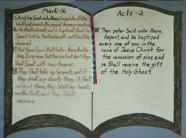 Mark-16
15 And he said unto them, Go ye into all the
world, and preach the gospel to every creature.
16 He that believeth and is baptized shall be
saved; but he that believeth not shall be
damned.
17 And these signs shall follow them that
shall speak with new tongues;
18 They shall take up serpents; and if
they drink any deadly thing, it shall
not hurt them; they shall lay hands
on the sick, and they shall
Acts-2
38 Then Peter said unto them,
Repent, and be baptized
every one of you in the
name of Jesus Christ for
the remission of sins, and
ye shall receive the gift
of the Holy Ghost.